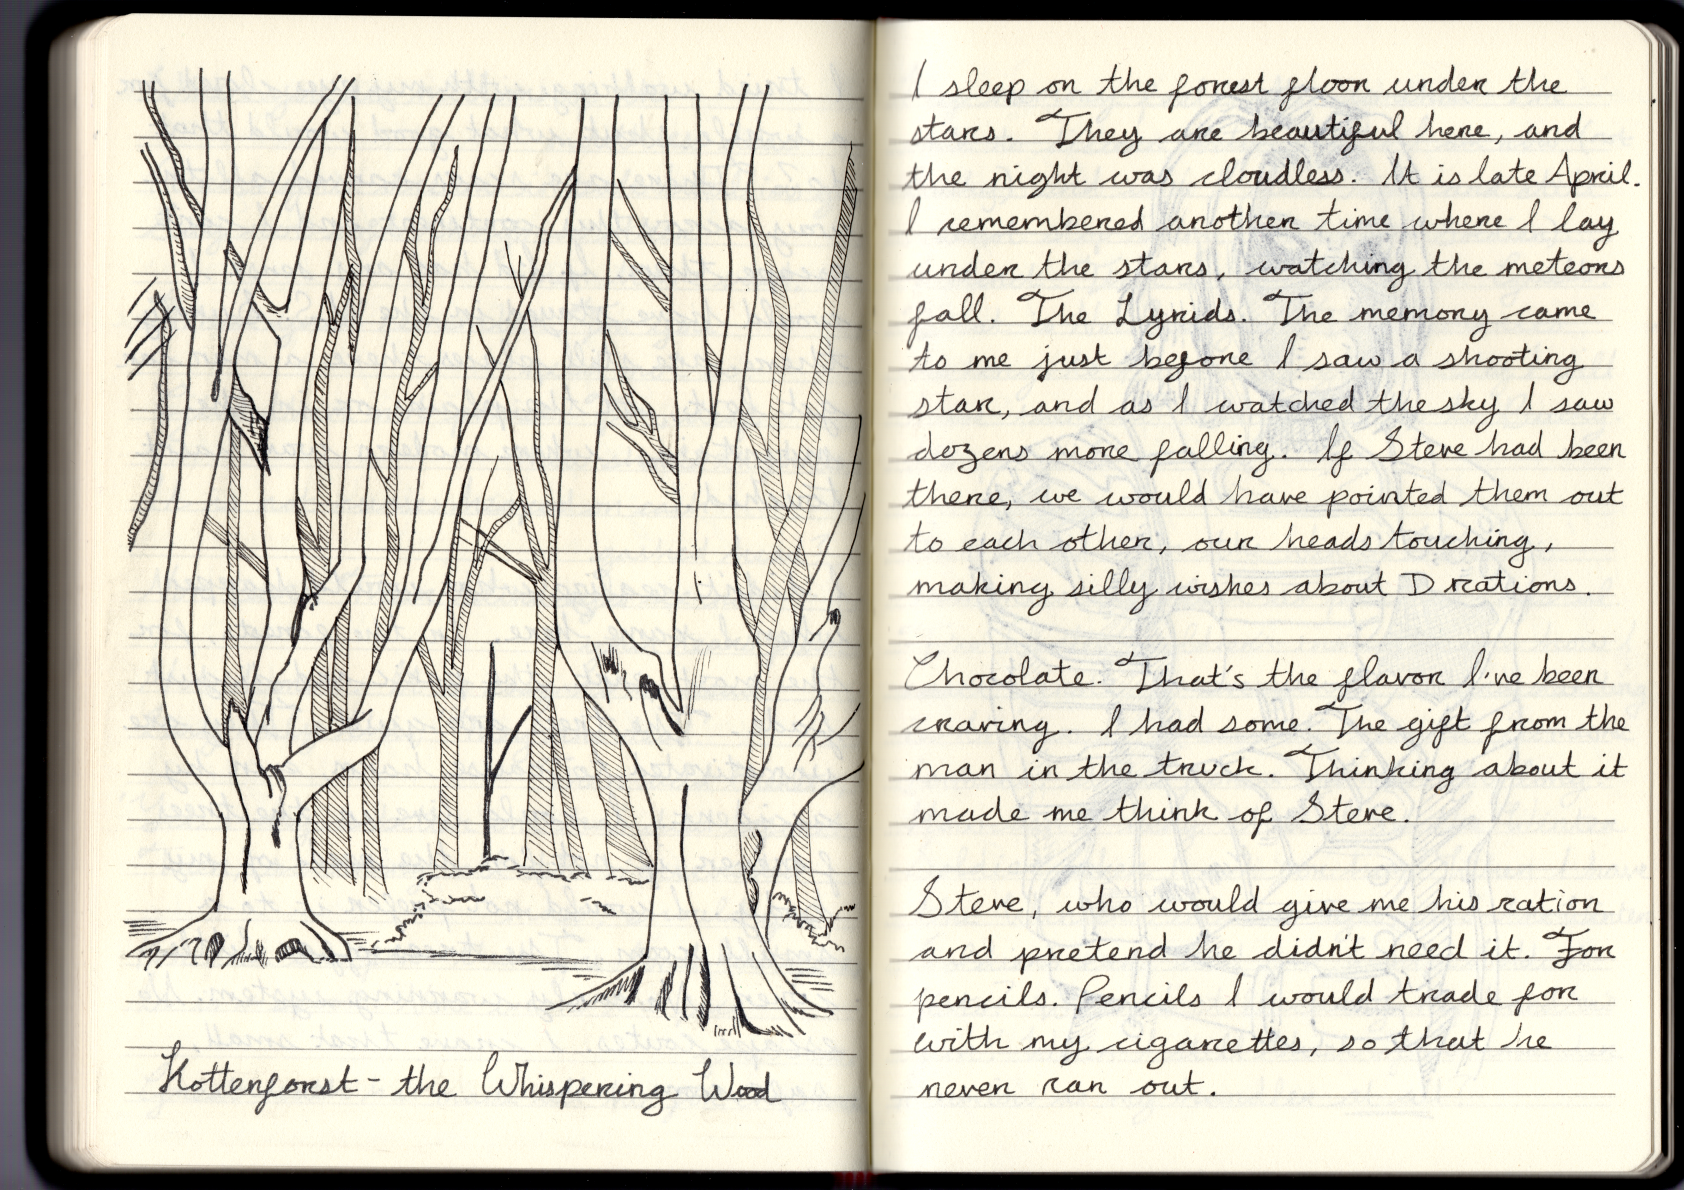 Kottenforst - the Whispering Wood
I sleep on the forest floor under the
stars. They are beautiful here, and
the night was cloudless. It is late April.
I remembered another time where I lay
under the stars, watching the meteors
fall. The Lyrids. The memory came
to me just before I saw a shooting
star, and as I watched the sky I saw
dozens more falling. If Steve had been
there, we would have pointed them out
to each other, our heads touching,
making silly wishes about D rations.
Chocolate. That's the flavor I've been
craving. I had some. The gift from the
man in the truck. Thinking about it
made me think of Steve.
Steve, who would give me his ration
and pretend he didn't need it. For
pencils. Pencils I would trade for
with my cigarettes, so that he
never ran out.